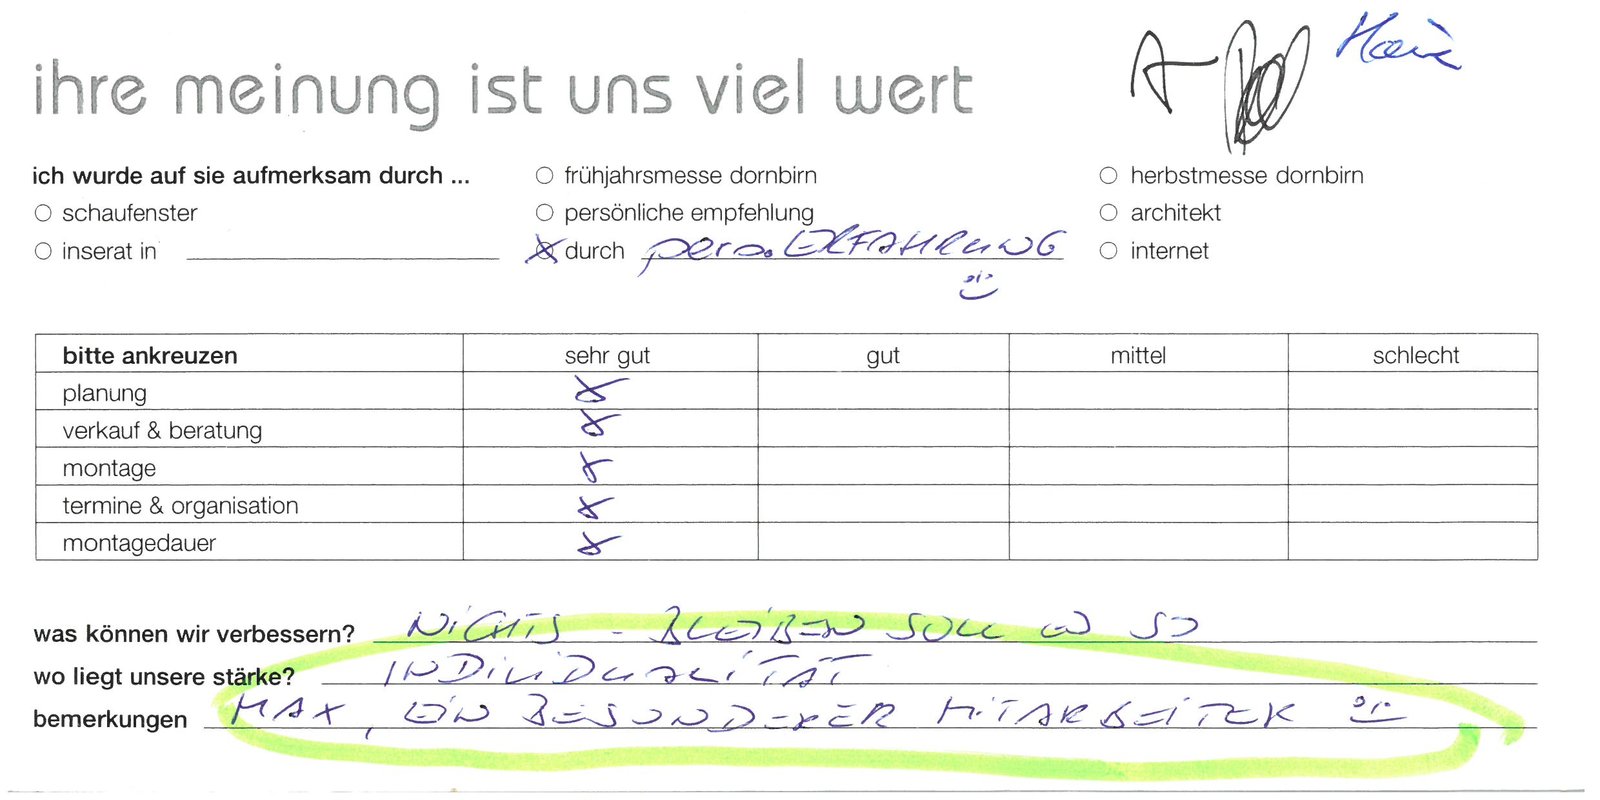 ihre meinung ist uns viel wert
ich wurde auf sie aufmerksam durch ... frühjahrsmesse dornbirn herbstmesse dornbirn
schaufenster persönliche empfehlung architekt
inserat in durch pers. ERFAHRUNG internet
bitte ankreuzen sehr gut gut mittel schlecht
planung
verkauf & beratung
montage
termine & organisation
montagedauer
was können wir verbessern? NICHTS - BLEIBEN SOLL ES SO
wo liegt unsere stärke? INDIVIDUALITÄT
bemerkungen MAX, EIN BESONDERER MITARBEITER